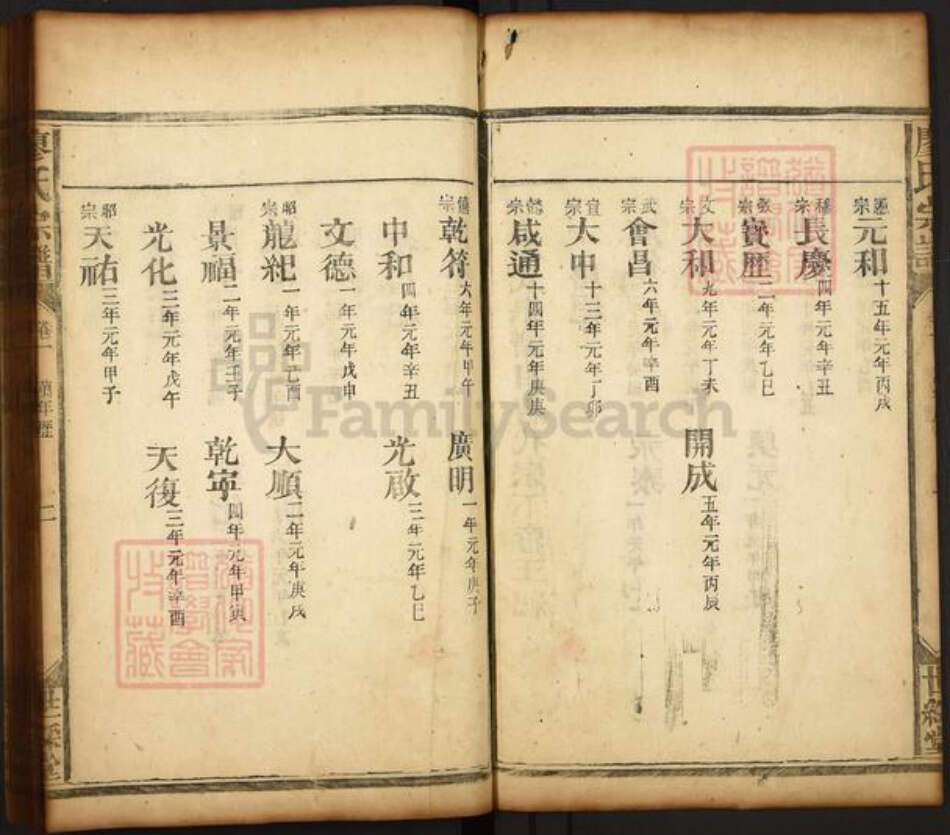 憲宗 元和 十五年元年丙戌
穆宗 長慶 四年元年辛丑
敬宗 寶歷 二年元年乙巳
文宗 大和 九年元年丁未 開成 五年元年丙辰
武宗 會昌 六年元年辛酉
宣宗 大中 十三年元年丁卯
懿宗 咸通 十四年元年庚庚
僖宗 乾符 六年元年甲午 廣明 一年元年庚子
中和 四年元年辛丑 光啟 三年元年乙巳
文德 一年元年戊申
昭宗 龍紀 一年元年己酉 大順 二年元年庚戌
景福 二年元年壬子 乾寧 四年元年甲寅
光化 三年元年戊午 天復 三年元年辛酉
昭宗 天祐 三年元年甲子
廖氏宗譜 卷一 歷年歷 二 世綵堂
FamilySearch